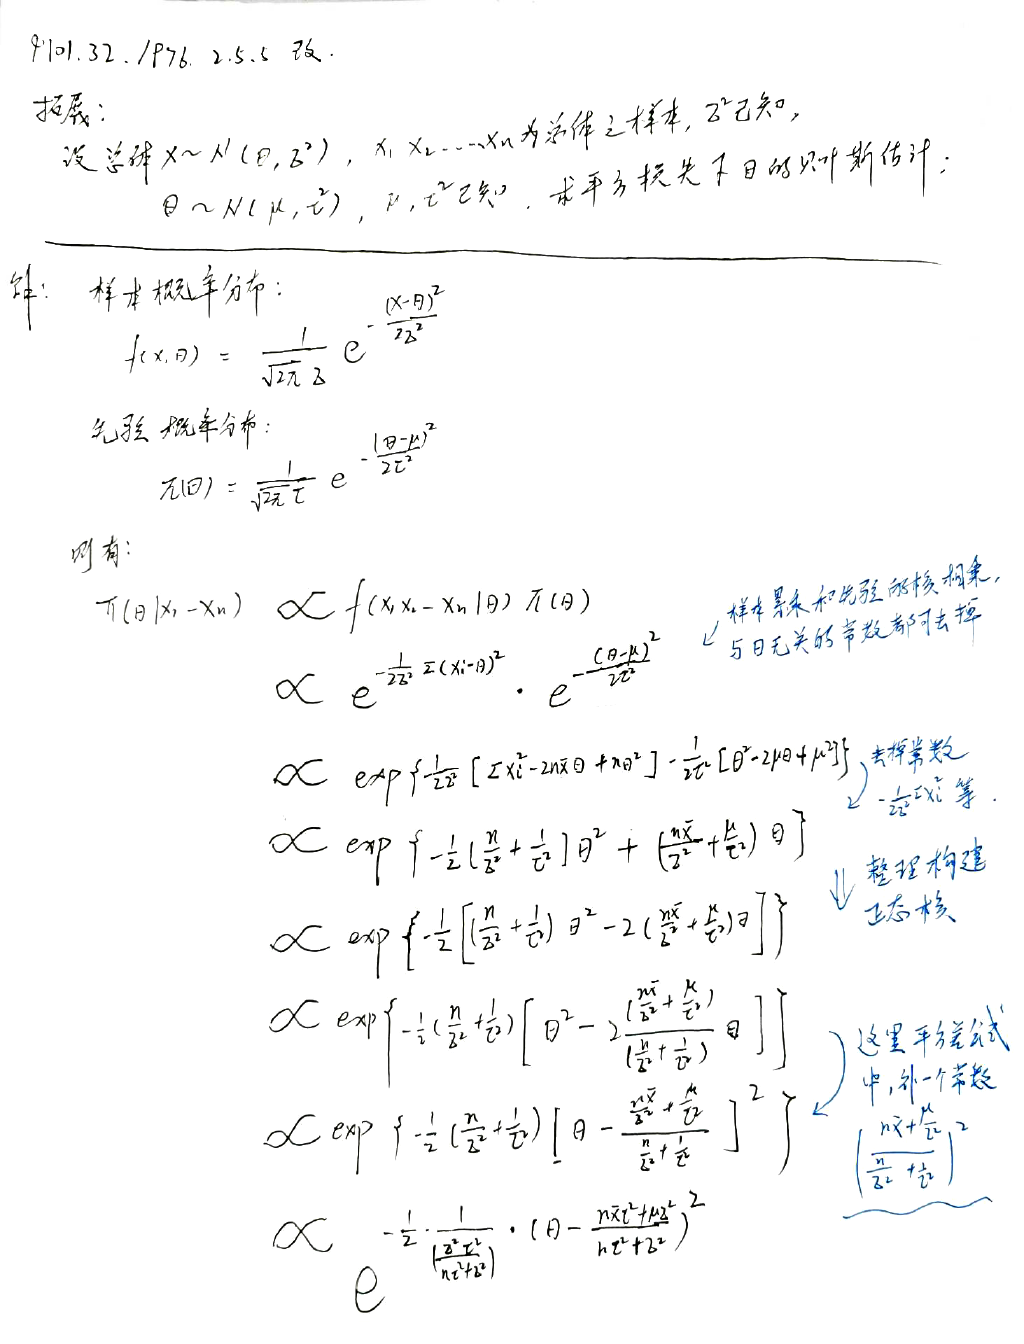 P101.32. 1976. 2.5.5 改.
拓展:
设总体 X~N(θ, σ²), x₁ x₂ ……xₙ为总体之样本, σ²已知,
θ~N(μ, τ²), μ, τ²已知. 求平方损失下θ的贝叶斯估计:
解: 样本概率分布:
f(x,θ) = 1/(√2π σ) e^{-(x-θ)²/2σ²}
先验概率分布:
π(θ) = 1/(√2π τ) e^{-(θ-μ)²/2τ²}
则有:
π(θ|x₁-xₙ) ∝ f(x₁x₂-xₙ|θ) π(θ)
样本累乘和先验的核相乘,
与θ无关的常数都可去掉
∝ e^{-1/2σ² Σ(xi-θ)²} · e^{-(θ-μ)²/2τ²}
∝ exp{-1/2σ² [Σxi²-2nx̄θ+nθ²] - 1/2τ² [θ²-2μθ+μ²]}
去掉常数
-1/2σ² Σxi² 等.
∝ exp{-1/2 [n/σ² + 1/τ²]θ² + (nx̄/σ² + μ/τ²) θ}
整理构建
正态核
∝ exp{-1/2 [(n/σ² + 1/τ²) θ² - 2(nx̄/σ² + μ/τ²)θ]}
∝ exp{-1/2 (n/σ² + 1/τ²) [θ² - 2 (nx̄/σ² + μ/τ²)/(n/σ² + 1/τ²) θ]}
这里平方差公式
中,补一个常数
((nx̄ + μ/τ²)/(n/σ² + 1/τ²))²
∝ exp{-1/2 (n/σ² + 1/τ²) [θ - (nx̄/σ² + μ/τ²)/(n/σ² + 1/τ²)]²}
∝ e^{-1/2 · 1/(σ²τ²/(nτ²+σ²)) · (θ - (nx̄τ²+μσ²)/(nτ²+σ²))²}